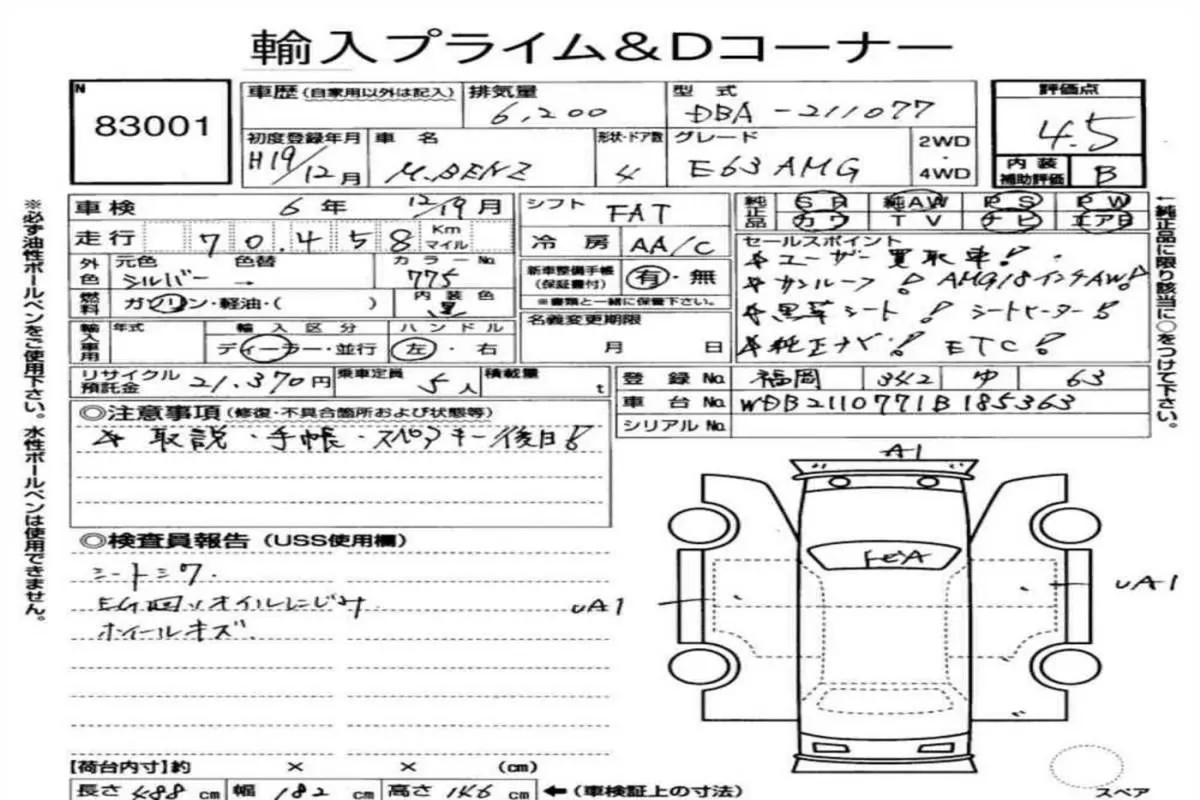 輸入プライム&Dコーナー
N
83001
車歴(自家用以外は記入)
排気量
6,200
型式
DBA-211077
評価点
4.5
初度登録年月
H19/12月
車名
M.BENZ
形状・ドア数
4
グレード
E63 AMG
2WD
・
4WD
内装
補助評価
B
車検 6年 12/19月
シフト FAT
純正品
SR 純AW PS PW
カワ TV ナビ エアB
走行 70,458 Km マイル
冷房 AA/C
外色
元色
シルバー
色替
→
カラーNo.
775
新車整備手帳
(保証書付)
有・無
※書類と一緒に保管下さい。
燃料
ガソリン・軽油・( )
内装色
黒
輸入車用
年式
輸入区分
ディーラー・並行
ハンドル
左・右
名義変更期限
月 日
セールスポイント
☆ユーザー買取車!
☆サンルーフ! AMG18インチAW!
☆黒革シート! シートヒーター!
☆純正ナビ! ETC!
リサイクル
預託金
21,370円
乗車定員
5人
積載量
t
登録No. 福岡 342 ゆ 63
車台No. WDB2110771B185363
シリアルNo.
◎注意事項(修復・不具合箇所および状態等)
☆取説・手帳・スペアキー後日!
◎検査員報告(USS使用欄)
シートシワ.
EG回りオイルにじみ
ホイールキズ.
A1
FどA
UA1
UA1
【荷台内寸】約 × × (cm)
長さ 488 cm 幅 182 cm 高さ 146 cm ←(車検証上の寸法)
スペア
※必ず油性ボールペンをご使用下さい。水性ボールペンは使用できません。
←純正品に限り該当に○をつけて下さい。